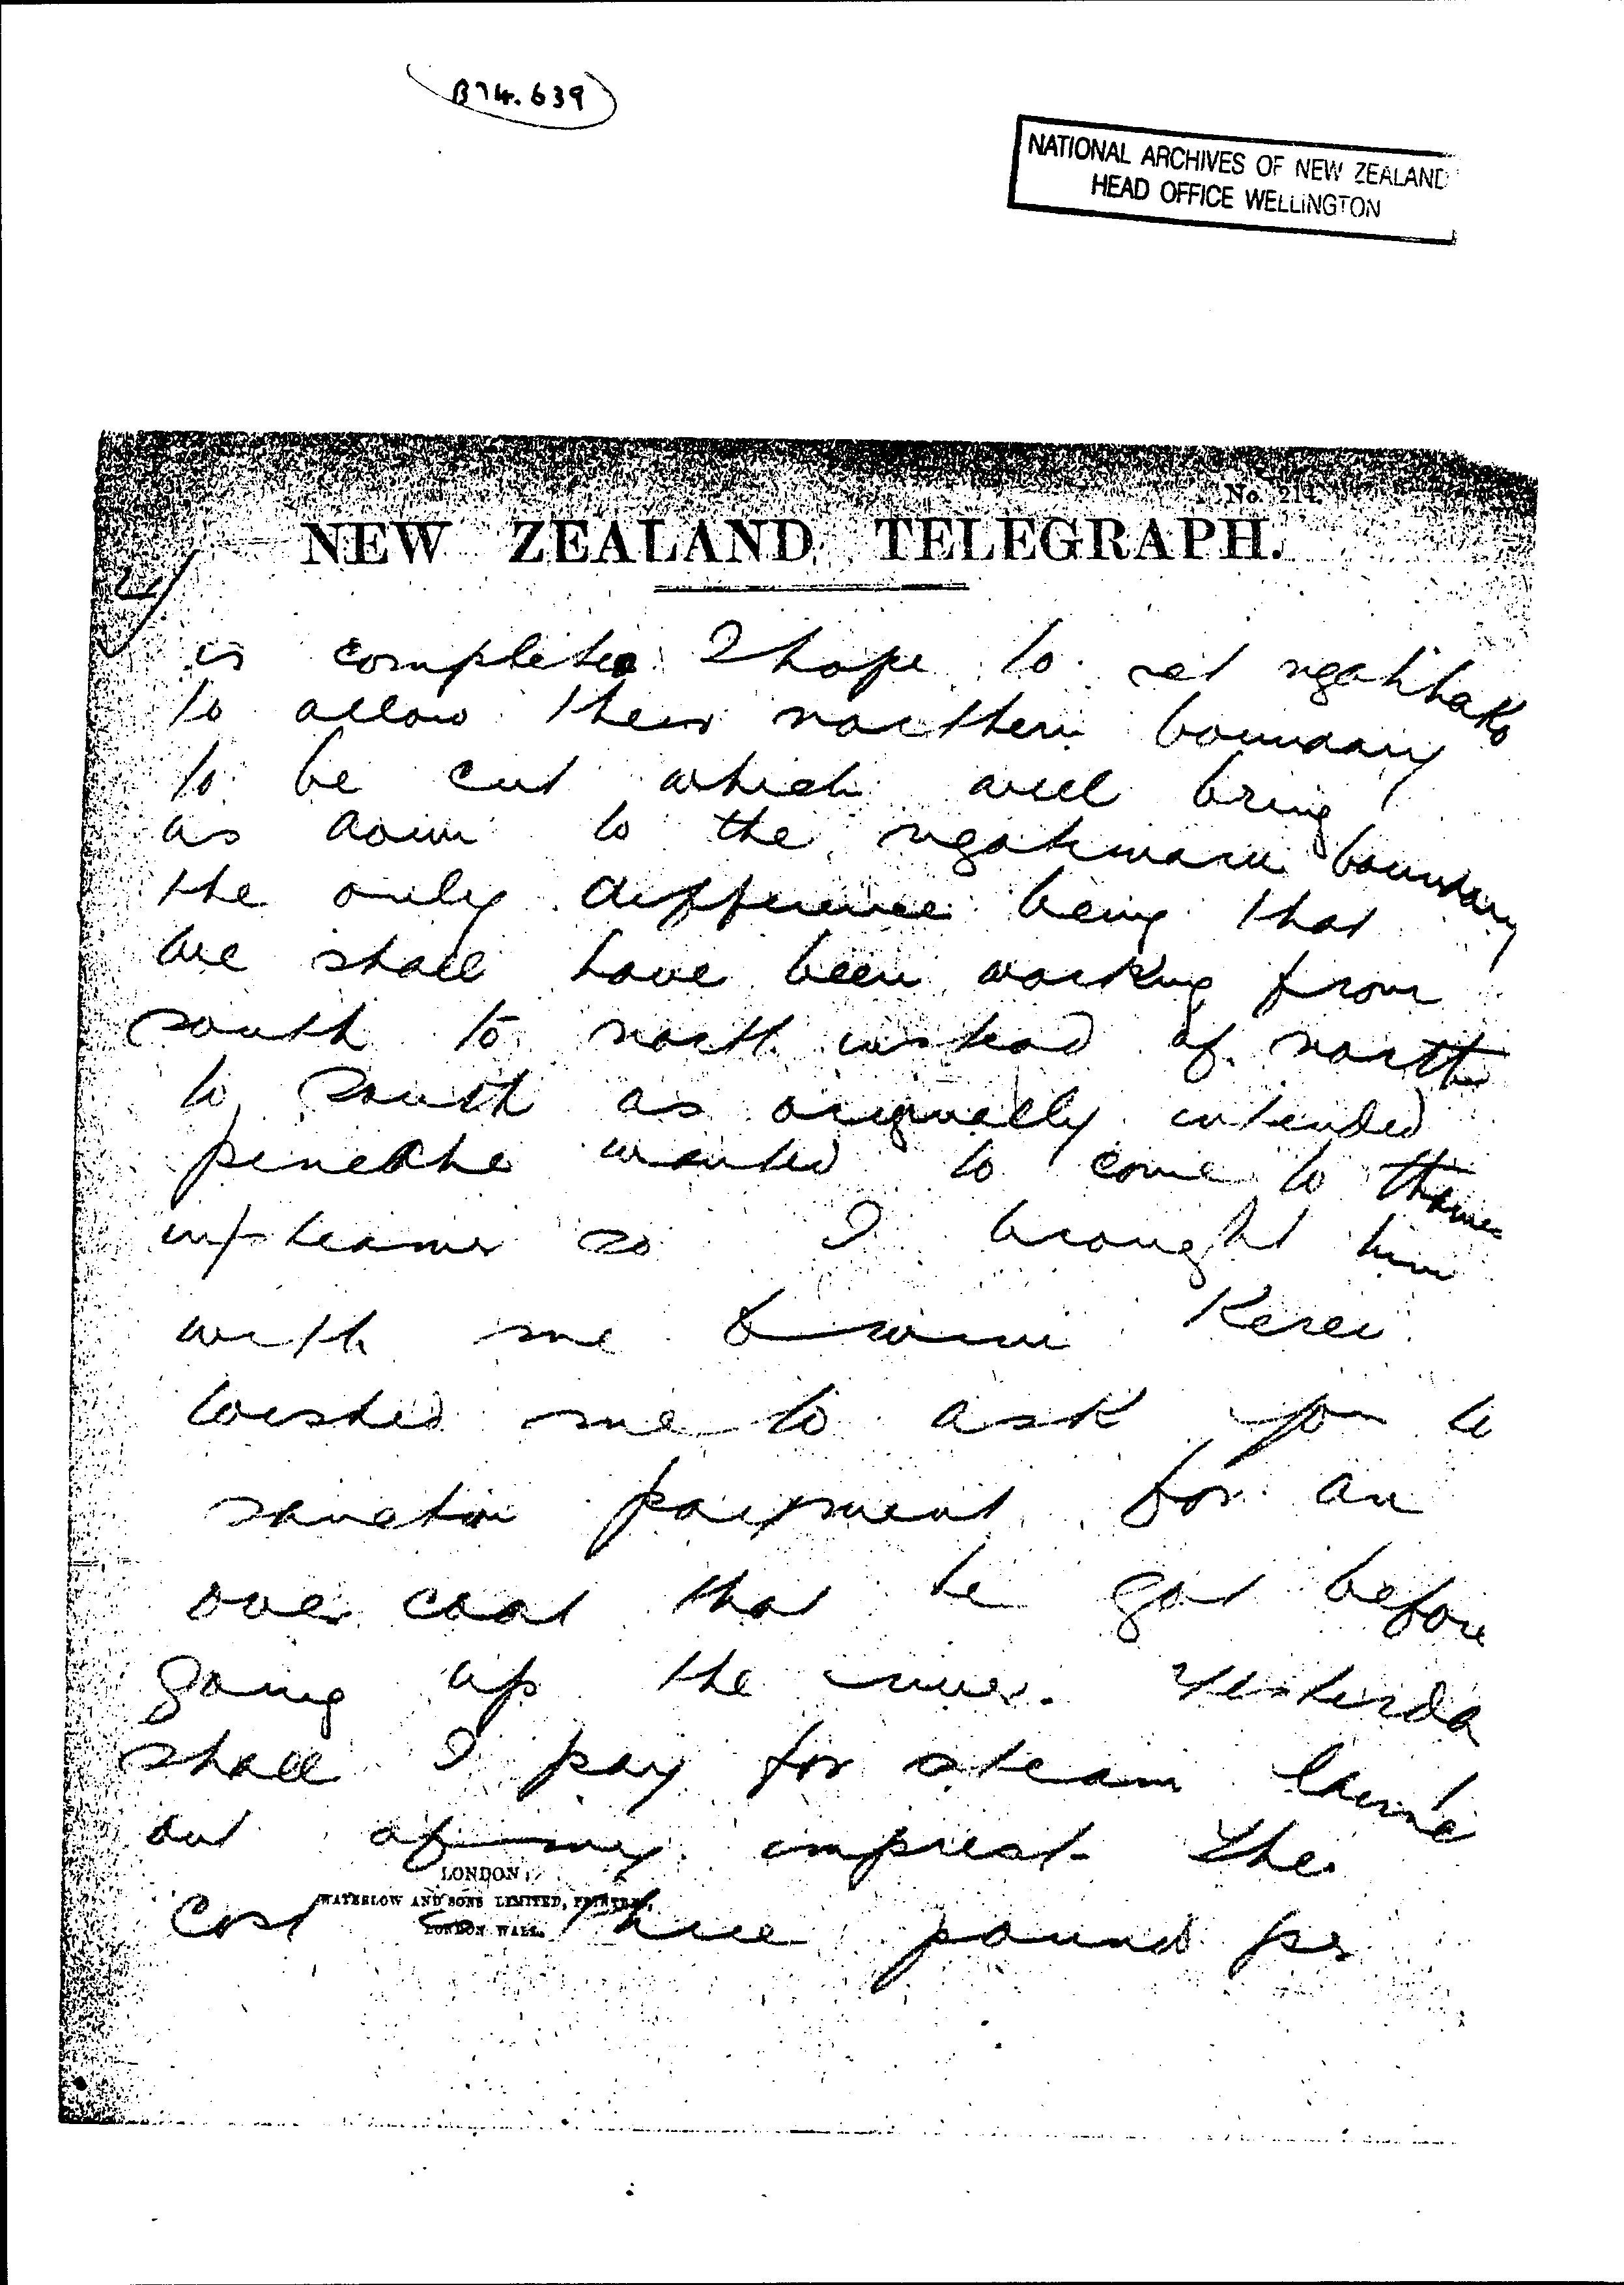 B74.639
NATIONAL ARCHIVES OF NEW ZEALAND
HEAD OFFICE WELLINGTON
No. 214.
NEW ZEALAND TELEGRAPH.
is completed I hope to get ngatihako
to allow their northern boundary
to be cut which will bring
us down to the ngatimaru boundary
the only difference being that
we shall have been working from
south to north instead of north
to south as originally intended
pineaha wanted to come to thames
in steamer so I brought him
with me & wini Kerei
wished me to ask you to
sanction payment for an
over coat that he got before
going up the river. Yesterda
shall I pay for steam launc
out of my imprest the
LONDON:
WATERLOW AND SONS LIMITED, PRINTERS,
LONDON WALL.
cost is three pound per